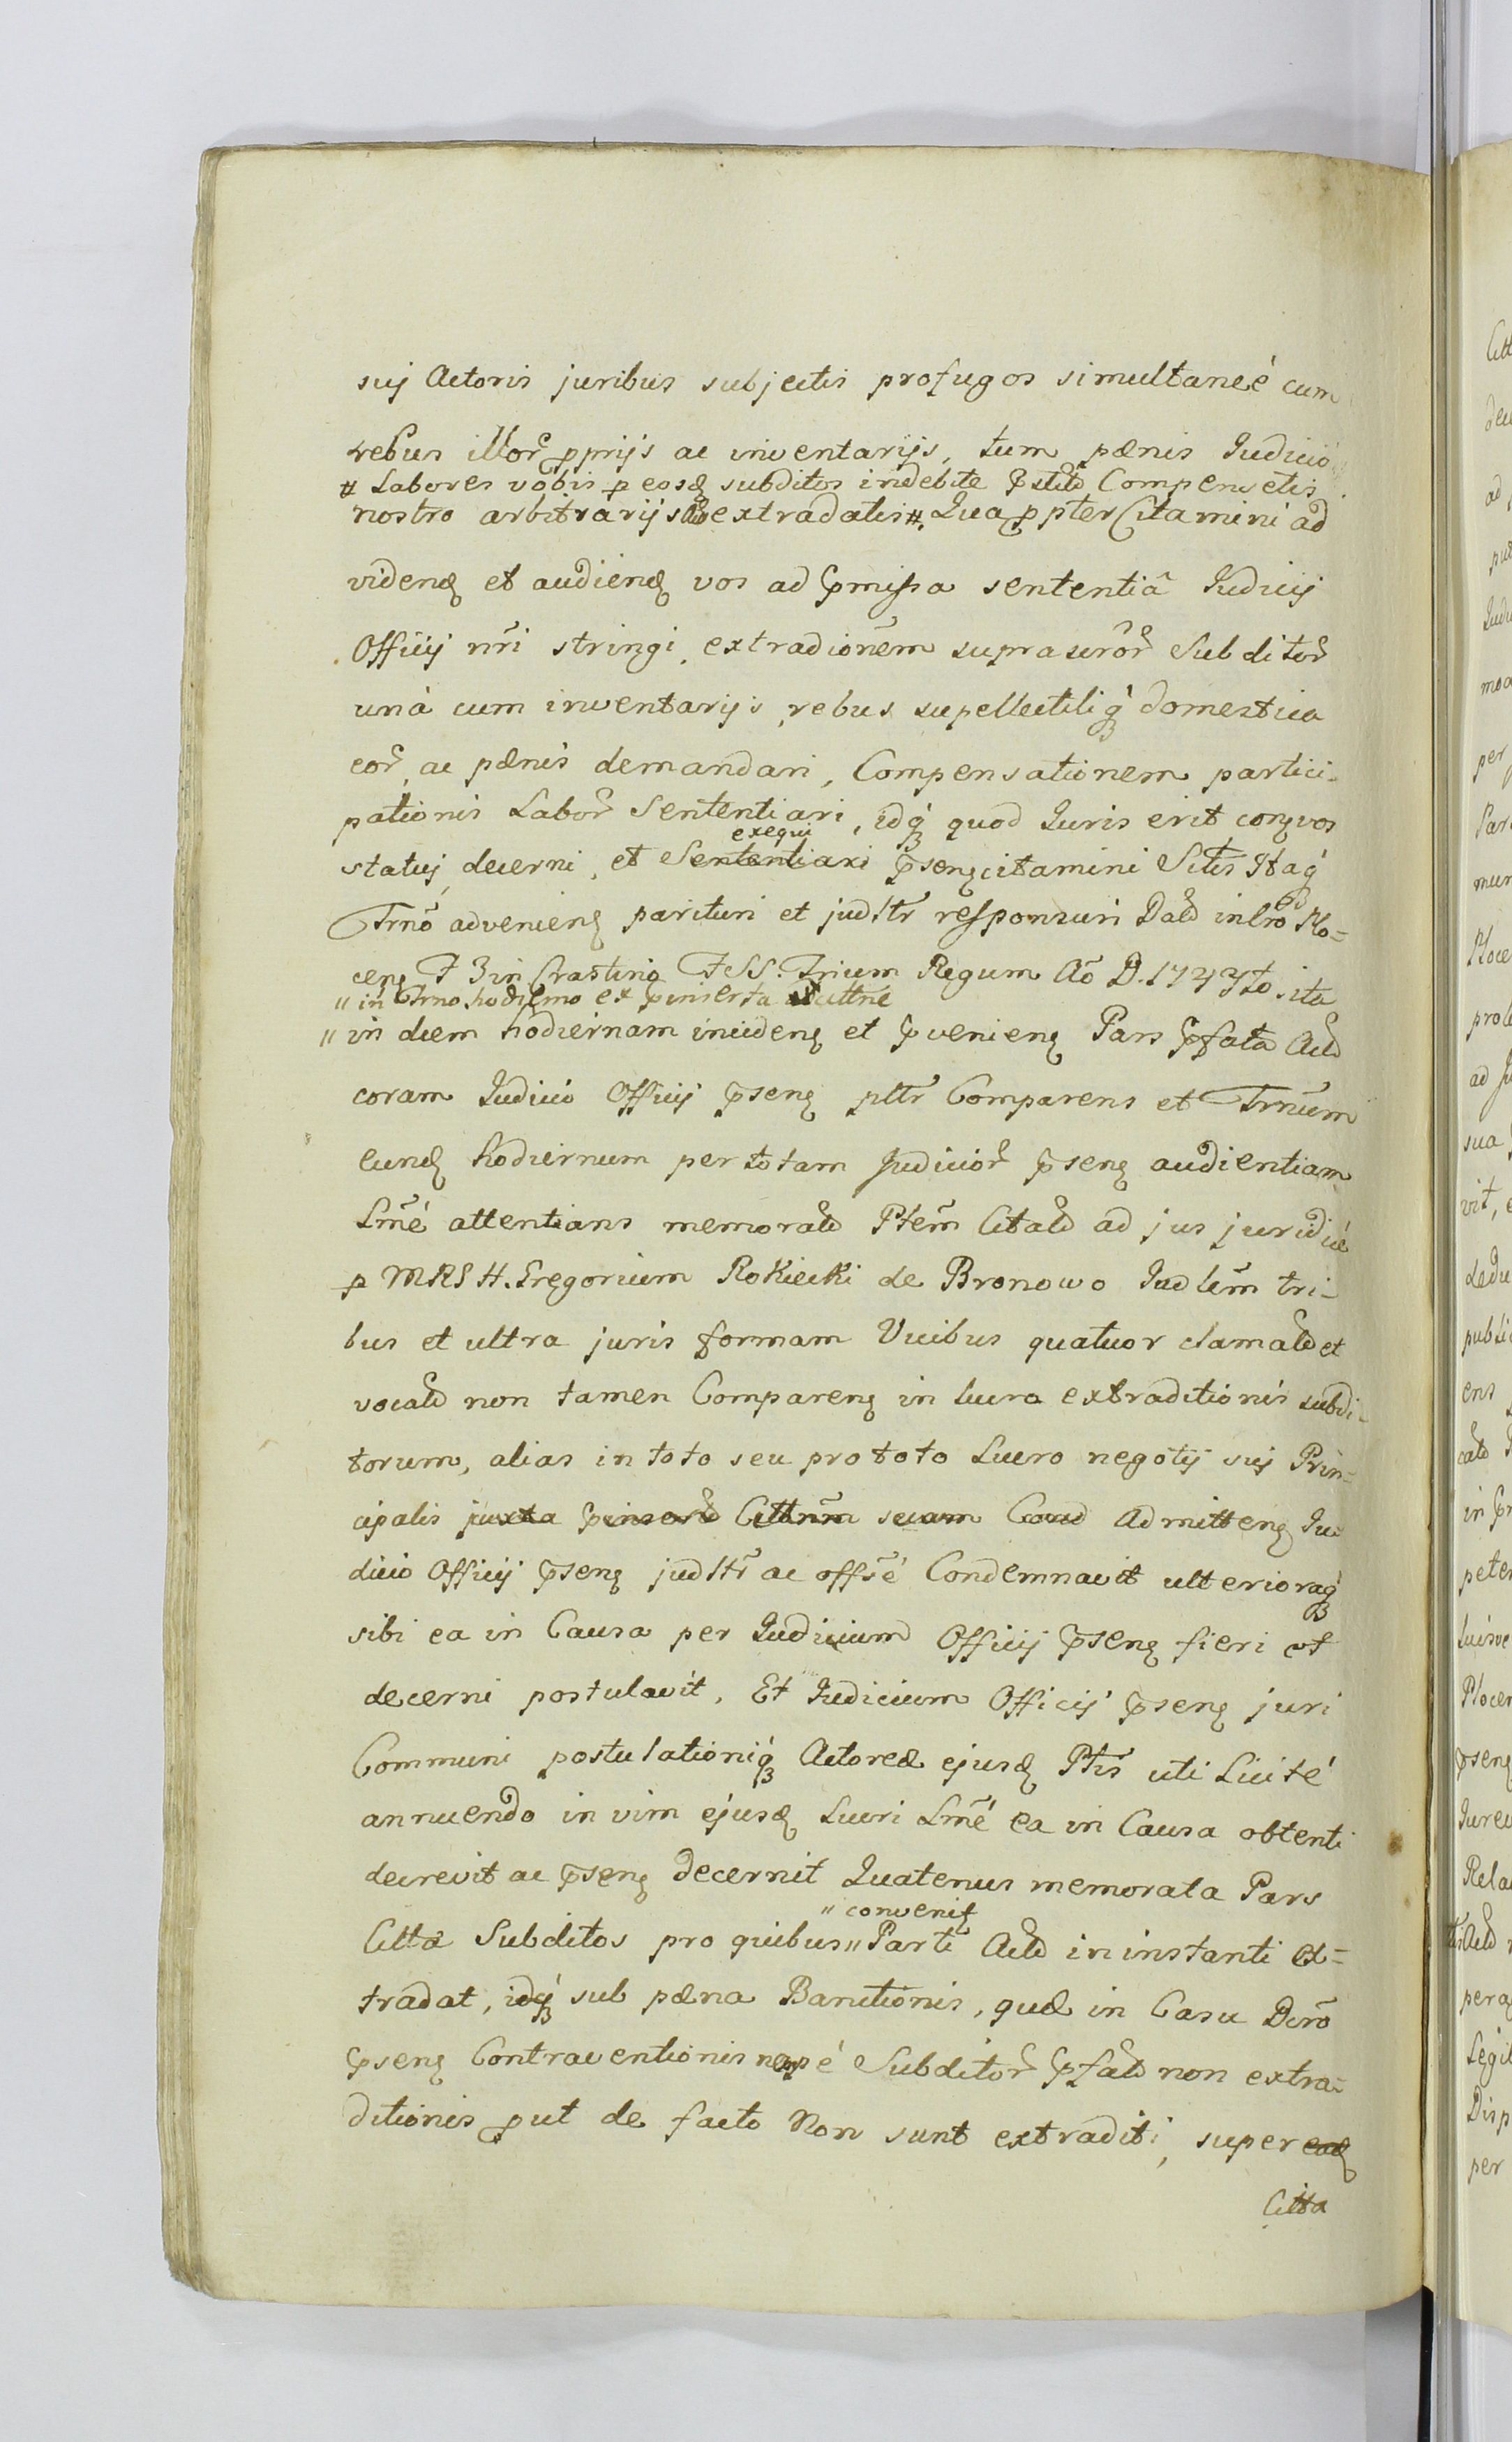 suj Actoris juribus subjectis profugos simultaneé cum
rebus illor̃ ꝓprijs ac inventarijs, tum pænis Judicio
# Labores vobis ꝑ eosꝗ subditos indebite p̃stito Compensetis
nostro arbitrarijs extradatis #. Quaꝓpter Citamini ad
videnꝗ et audienꝗ vos ad p̃missa sententiâ Judicij
Officij nr̃i stringi, extradionẽm suprascrõr̃ Subditor̃
unà cum inventarijs, rebus supellectiliq́ꝫ domestica
eor̃, ac pænis demandari, Compensationem partici-
pationis Labor̃ Sententiari, idq́ꝫ quod Juris erit conꝗvos
exequi
statuj, decerni, et Sententiari p̃senꝗ citamini Sitis Itaq́ꝫ
Trnõ advenienꝗ parituri et judltr̃ responsuri Dato in Cro Plo-
cenꝗ F 3 in Crastino F SS. Trium Regum Aõ D. 1747to, ita
" in Trno hodierno ex p̃inserta Cittne
" in diem hodiernam incidenꝗ et p̃venienꝗ Pars p̃fata Acto
coram Judicio Officij p̃senꝗ pltr̃ Comparens et Trnũm
eunꝗ hodiernum per totam Judicior̃ p̃senꝗ audientiam
Lmẽ attentians memorato Ptẽm Citato ad jus juridicè
ꝑ MRS H. Gregorium Rokicki de Bronowo Judlẽm tri-
bus et ultra juris formam Vicibus quatuor clamato et
vocato non tamen Comparenꝗ in lucro extraditionis subdi-
torum, alias in toto seu pro toto Lucro negotij suj Prin-
cipalis juxta p̃inserto Cittnm̃ suam Admittenꝗ Ju
dicio Officij p̃senꝗ judltr̃ ac offsẽ Condemnavit ulterioraq́ꝫ
sibi ea in Causa per Judicium Officij p̃senꝗ fieri et
decerni postulavit. Et Judicium Officij p̃senꝗ juri
Communi postulationiq́ꝫ Actoreæ ejusꝗ Ptis uti Licité
annuendo in vim ejusꝗ Lucri Lmẽ ea in Causa obtenti
decrevit ac p̃senꝗ decernit Quatenus memorata Pars
" convenit
Citta Subditos pro quibus " Parti Acto in instanti ex-
tradat, idq́ꝫ sub pæna Banitionis, quæ in Casu Dcrõ
p̃senꝗ Contraventionis nepé Subditor̃ p̃fato non extra-
ditionis ꝓut de facto Non sunt extraditi, super eaꝗ
Citta